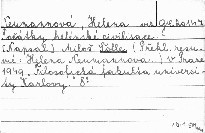 Neumannová, Helena
Počátky helénské civilisace.
(Napsal) Miloš (Přehl. resu-
mé: Helena Neumannová.) V Praze
1949. Filosofická fakulta universi-
ty Karlovy. 8°